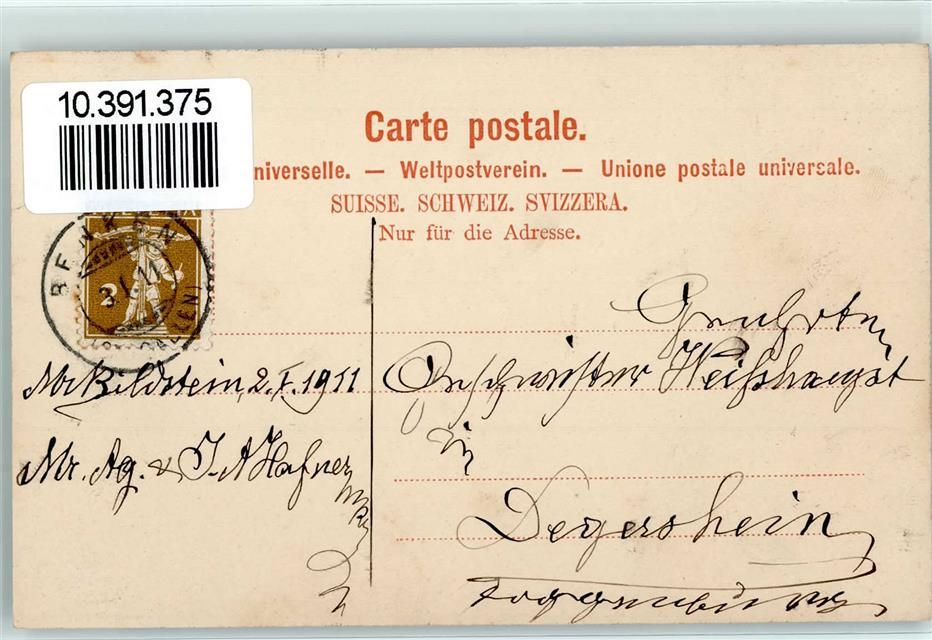 10.391.375
Carte postale.
niverselle. — Weltpostverein. — Unione postale universale.
SUISSE. SCHWEIZ. SVIZZERA.
Nur für die Adresse.
HELVETIA
BENKEN
3.I.11
2
(ST. GALLEN)
Mr Bildstein, 2. I. 1911
Mr. Ag. & J. A Hafner
Geehrten
Geschwister Weisshaupt
in
Degersheim
Toggenburg